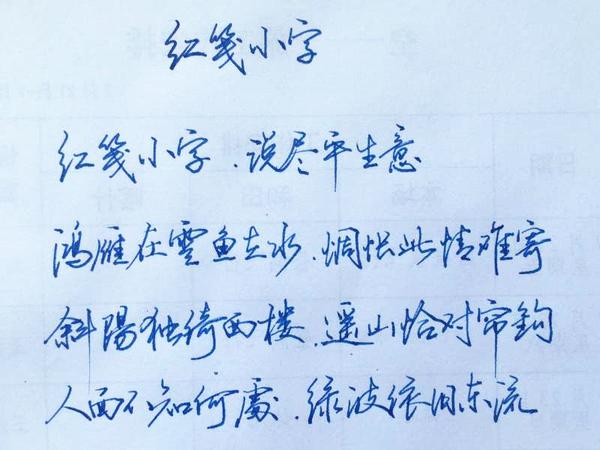 红笺小字
红笺小字.说尽平生意
鸿雁在雲鱼在水.惆怅此情难寄
斜陽独倚西楼.遥山恰对帘鈎
人面不知何處.绿波依旧东流